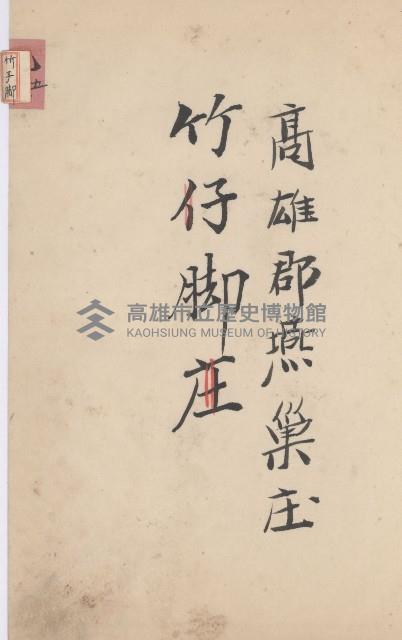 高雄郡燕巢庄
竹仔脚庄
竹子脚
五
高雄市立歷史博物館
KAOHSIUNG MUSEUM OF HISTORY